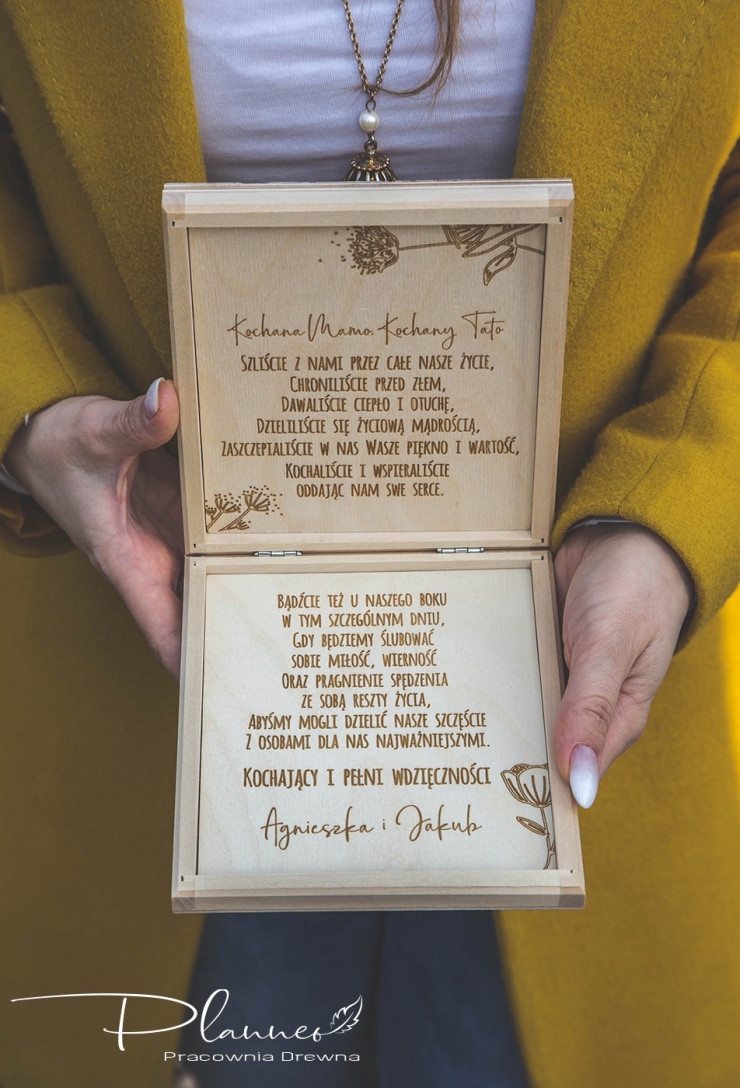 Kochana Mamo, Kochany Tato
Szliście z nami przez całe nasze życie,
Chroniliście przed złem,
Dawaliście ciepło i otuchę,
Dzieliliście się życiową mądrością,
Zaszczepialiście w nas Wasze piękno i wartość,
Kochaliście i wspieraliście
oddając nam swe serce.
Bądźcie też u naszego boku
w tym szczególnym dniu,
Gdy będziemy ślubować
sobie miłość, wierność
Oraz pragnienie spędzenia
ze sobą reszty życia,
Abyśmy mogli dzielić nasze szczęście
z osobami dla nas najważniejszymi.
Kochający i pełni wdzięczności
Agnieszka i Jakub
Planneo
Pracownia Drewna